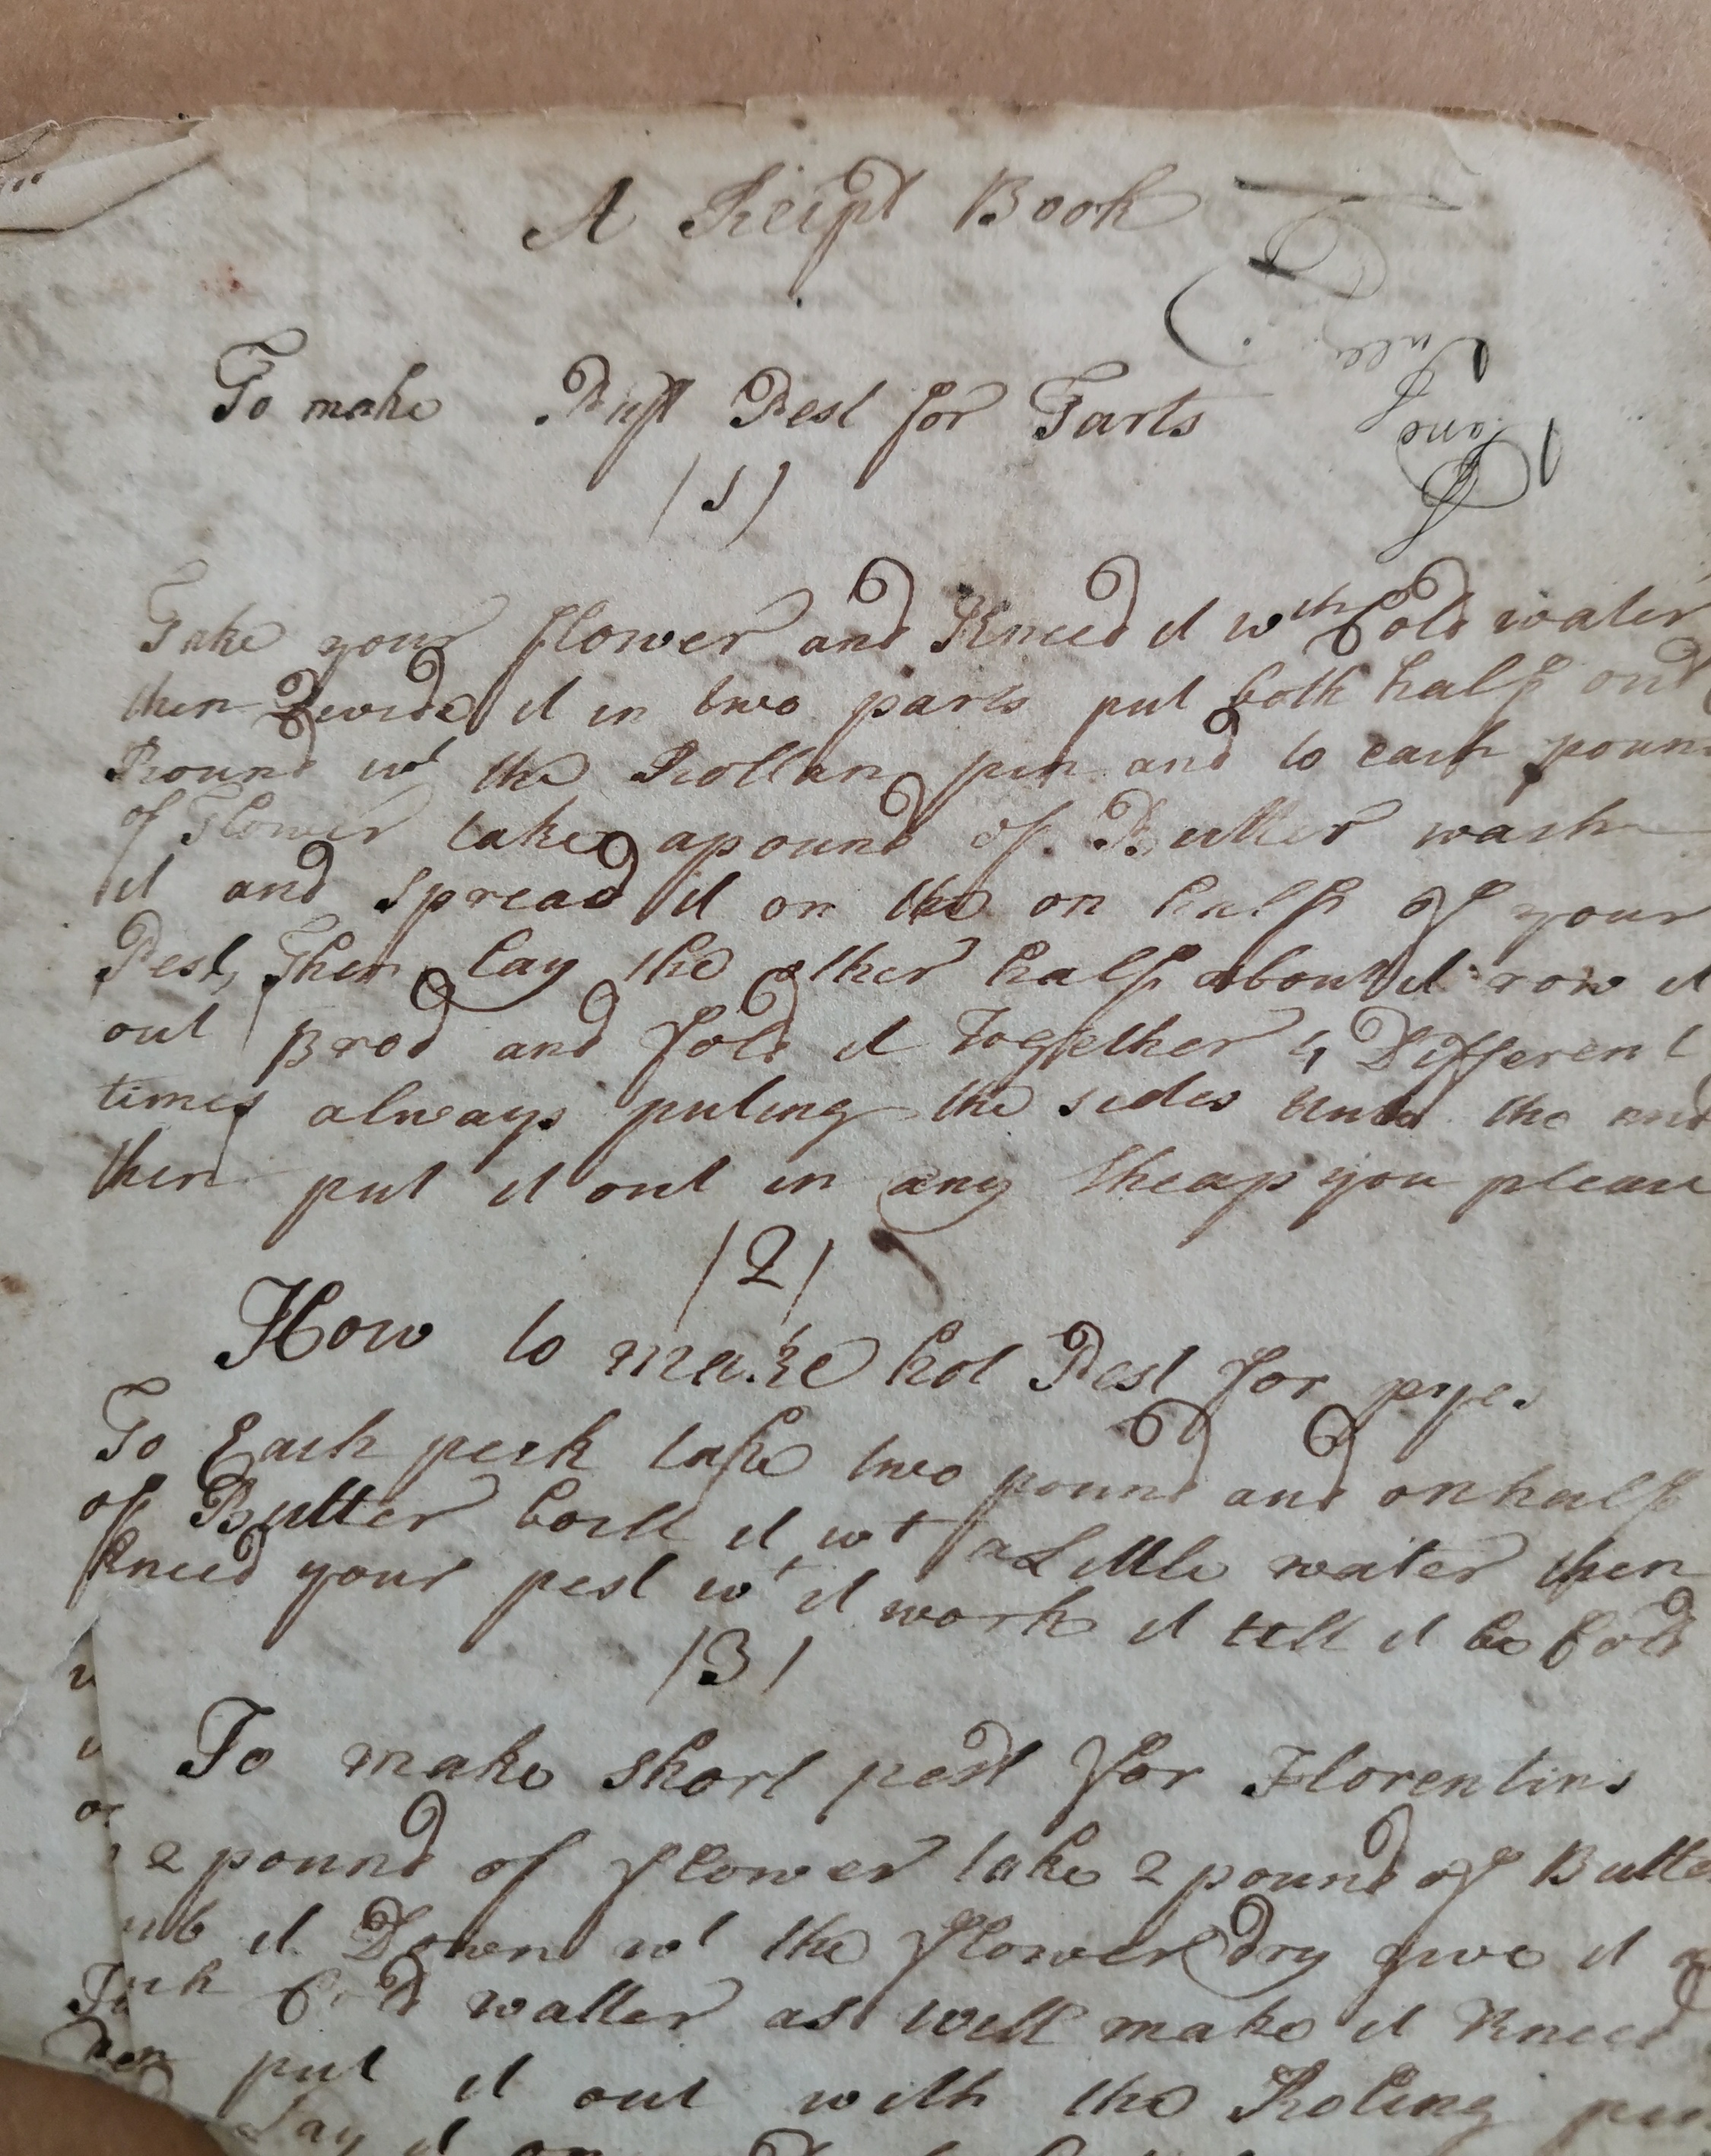 A Recipt Book
To make Puft Pest for Tarts
/1/
Take your flower and Kneed it wth Cold water
then Devide it in two parts put both half out
Round wt the Rollan pin and to each poun
of Flower take apound of Butter wash
it and Spread it on the on half of your
Pest, Then lay the other half about it row it
out Brod and fold it Together 4 Different
times always puting the sides the end
then put it out in any Sheap you please
/2/
How to make hot Pest for pyes
To Each peck take two pound and onhalf
of Butter boill it wt a Little water then
kneed your pest wt it work it till it be Cold
/3/
To make short pest for Florentins
2 pound of flower take 2 pound of Butte
ub it Down wt the flower dry give it
Cold watter as will make it Kneed
then put it out with the Roling
Lay it on